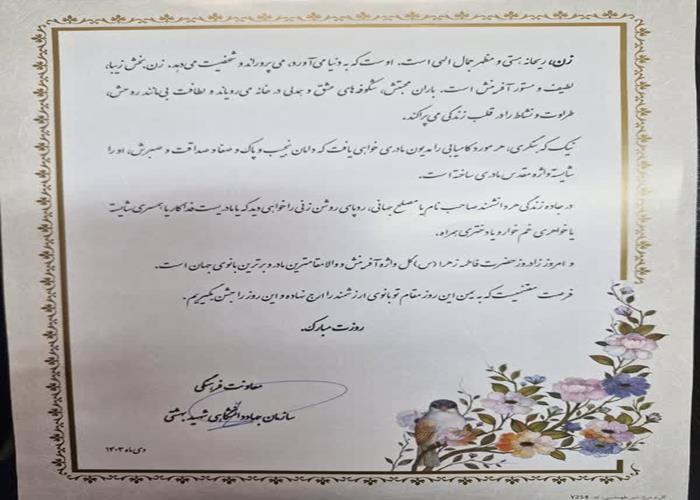 زن، ریحانه هستی و مظهر جمال الهی است. اوست که به دنیا می‌آورد، می‌پروراند و شخصیت می‌دهد. زن بخش زیبا،
لطیف و مستور آفرینش است. باران محبتش، شکوفه‌های عشق و همدلی در خانه می‌رویاند و لطافت بی‌مانند روحش،
طراوت و نشاط را در قلب زندگی می‌پراکند.
نیک که بنگری، هر مورد کامیابی را مدیون مادری خواهی یافت که دامان نجیب و پاک و صفا و صداقت و صبرش، او را
شایسته واژه مقدس مادری ساخته است.
در جاده زندگی هر دانشمند صاحب نام یا مصلح جهانی، ردپای روشن زنی را خواهی دید که یا مادریست فداکار یا همسری شایسته
یا خواهری غم خوار و یا دختری همراه.
و امروز زادروز حضرت فاطمه زهرا (س) گل واژه آفرینش و والامقامترین مادر و برترین بانوی جهان است.
فرصت مغتنمیست که به یمن این روز مقام تو بانوی ارزشمند را ارج نهاده و این روز را جشن بگیریم.
روزت مبارک.
معاونت فرهنگی
سازمان جهاد دانشگاهی شهید بهشتی
دی ماه ۱۴۰۳